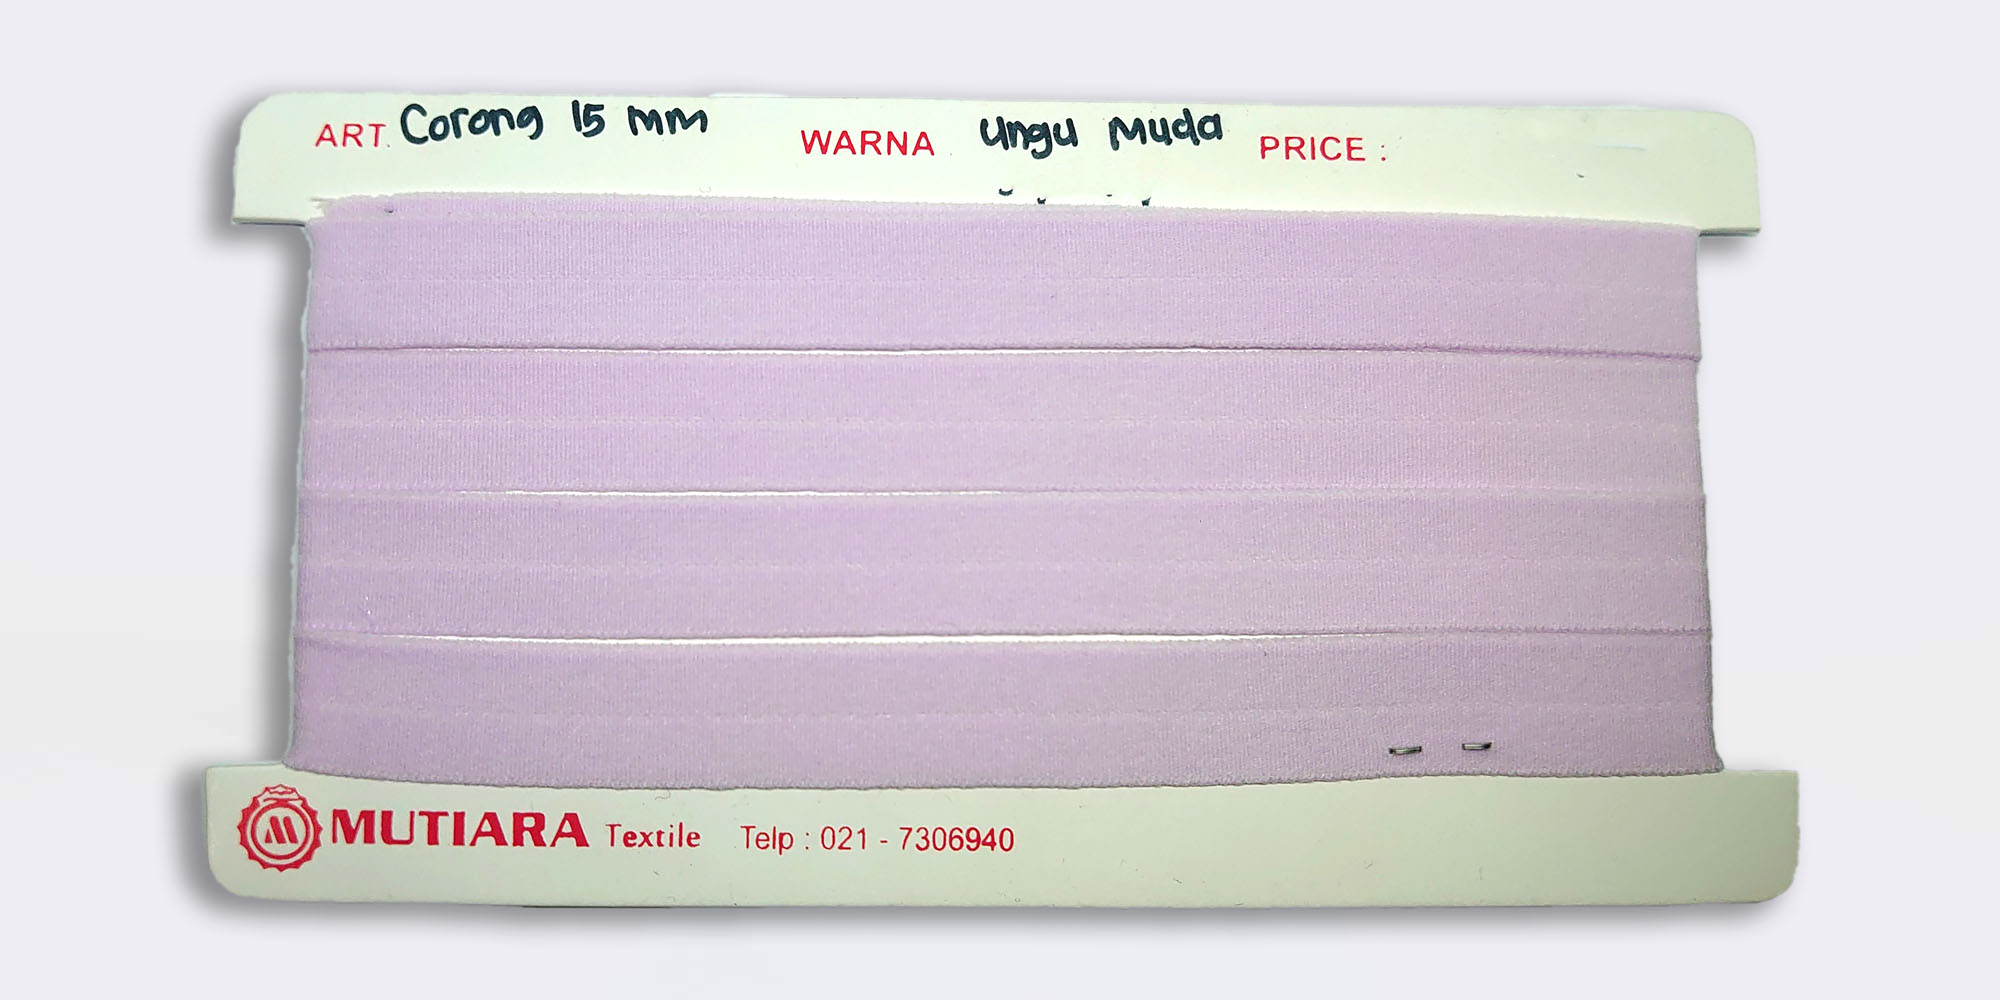 ART. Corong 15 mm WARNA Ungu Muda PRICE :
MUTIARA Textile Telp : 021 - 7306940